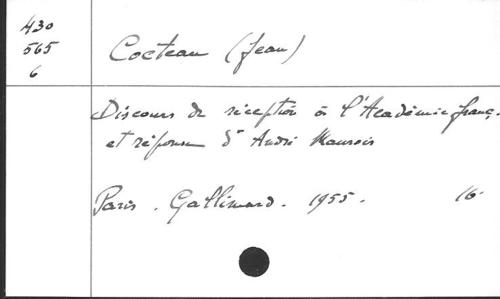 430
565
6
Cocteau (Jean)
Discours de réception à l'Académie franç.
et réponse d'André Maurois
Paris. Gallimard. 1955. 16°